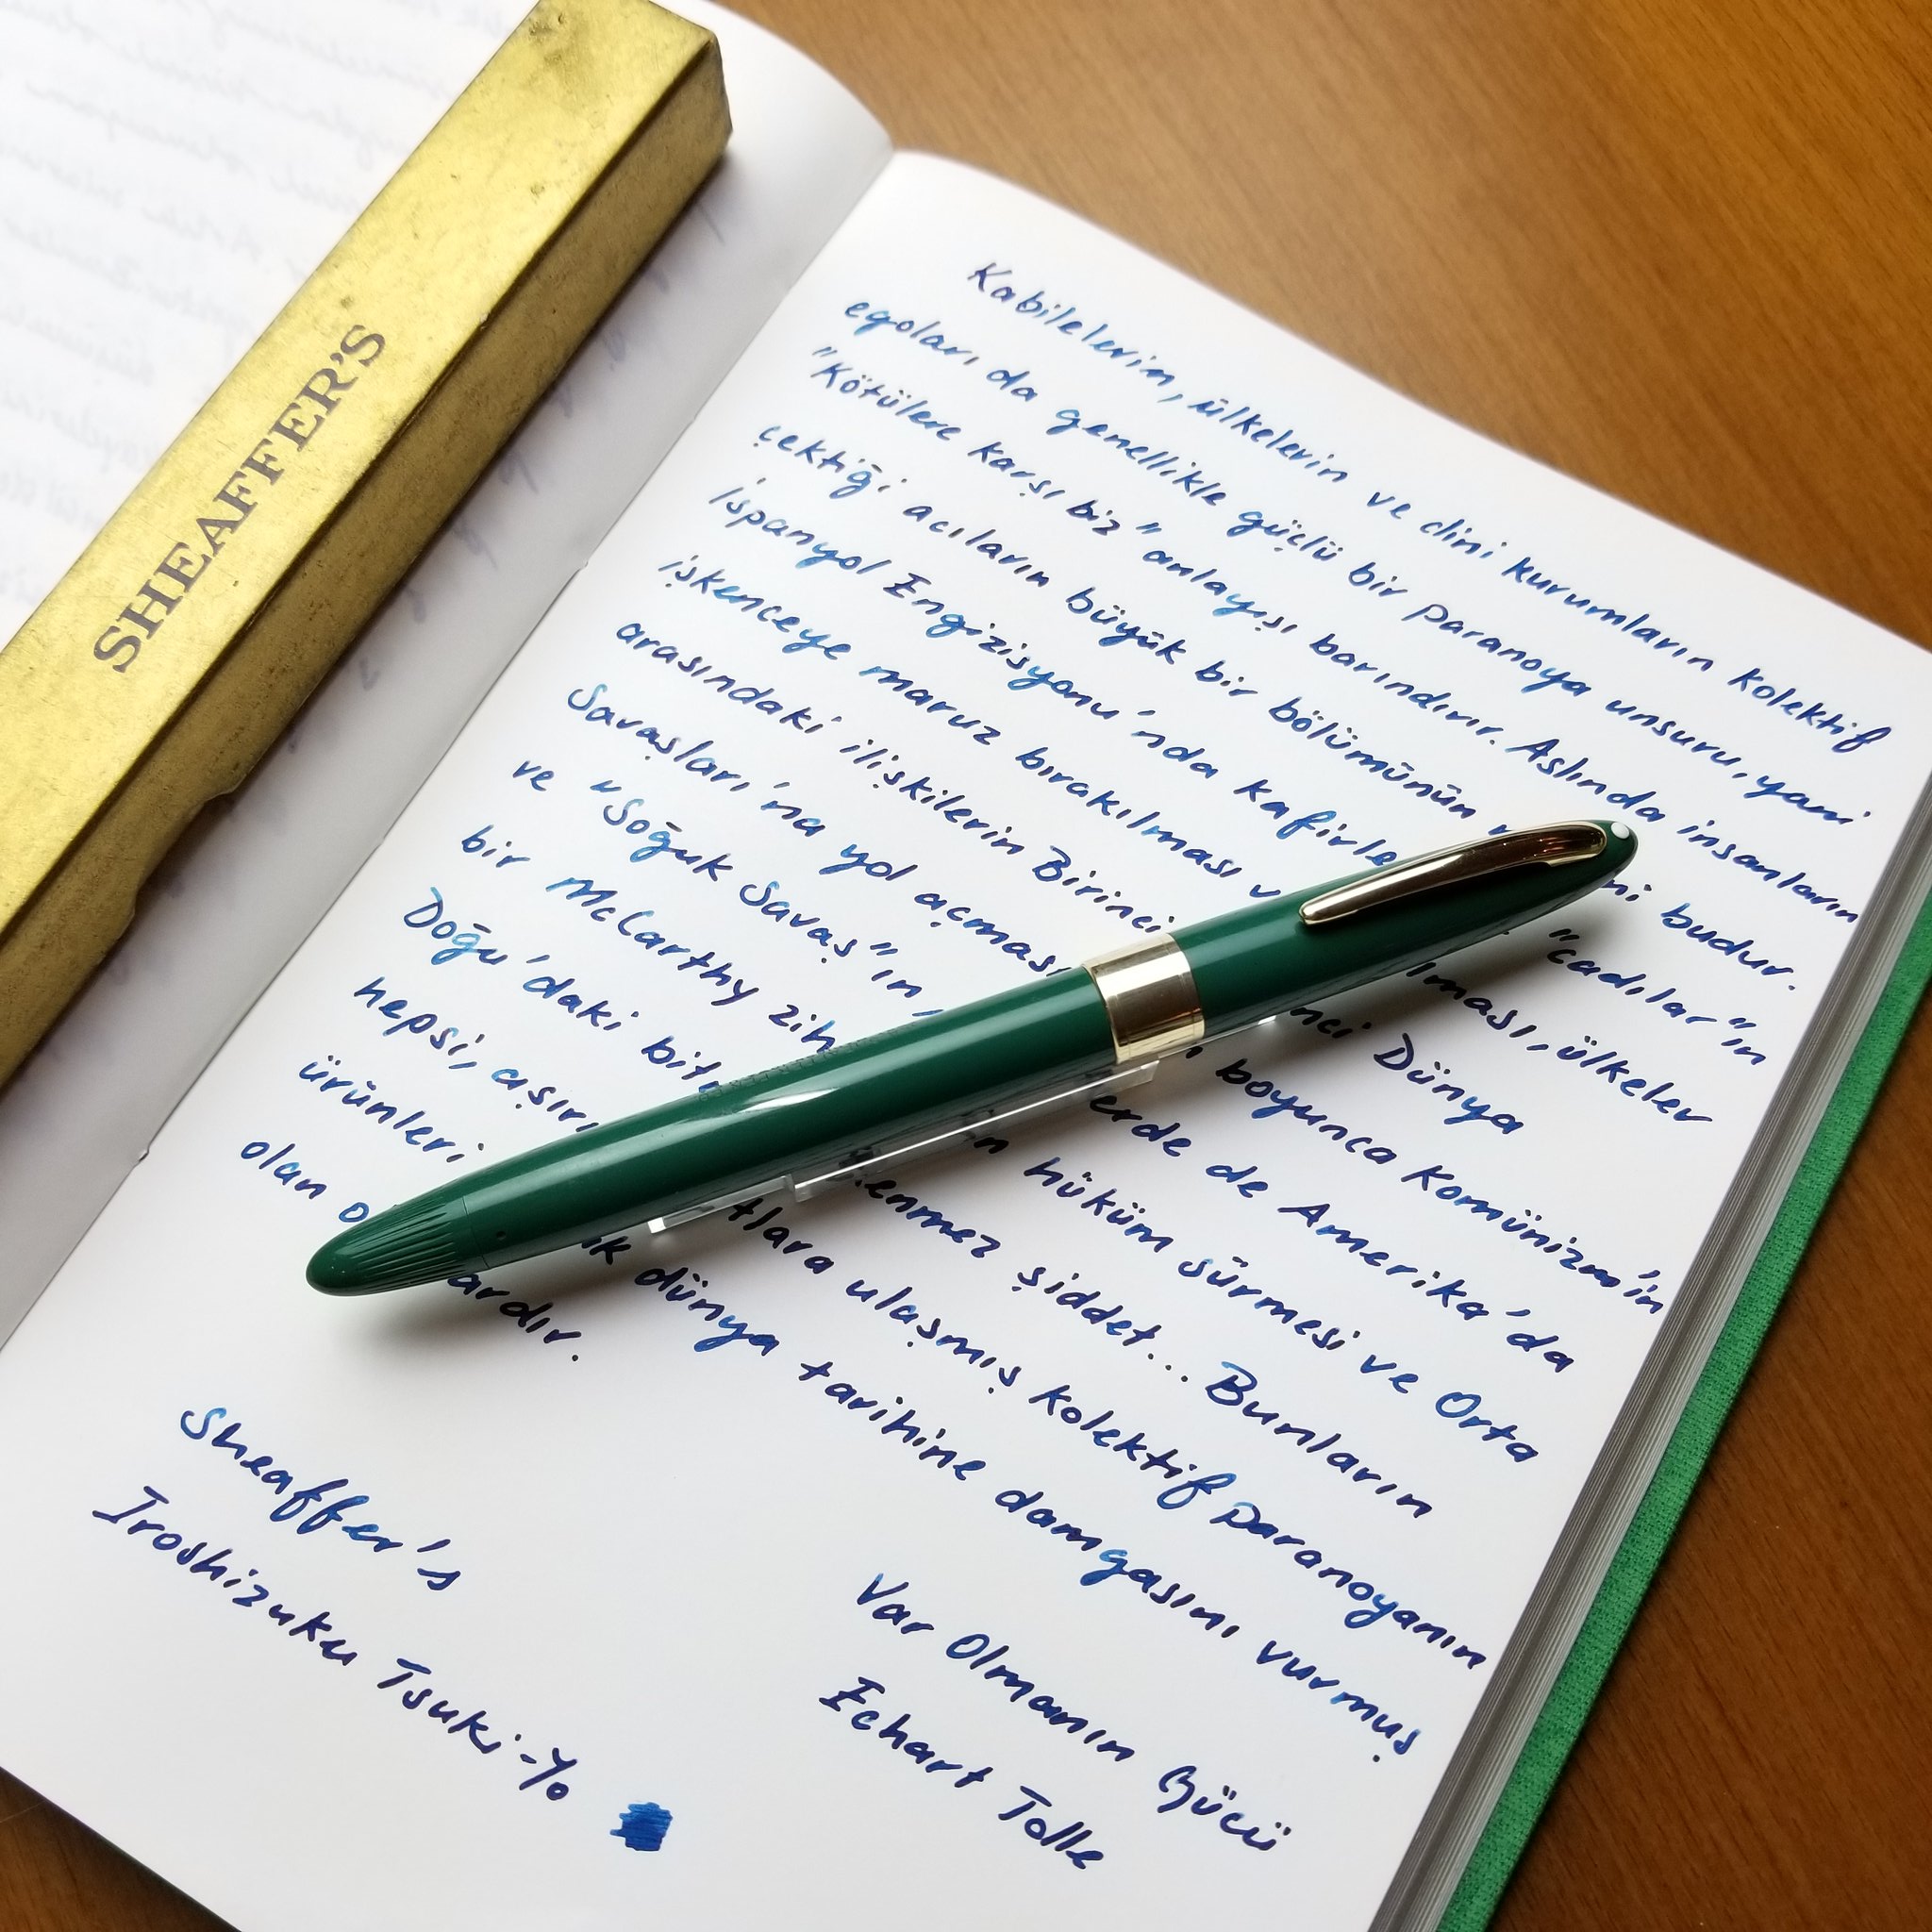 SHEAFFER'S
Kabilelerin, ülkelerin ve dini kurumların kolektif
egoları da genellikle güçlü bir paranoya unsuru, yani
"Kötülere karşı biz" anlayışı barındırır. Aslında insanların
çektiği acıların büyük bir bölümünün budur.
İspanyol Engizisyonu'nda "cadılar"ın
işkenceye maruz bırakılması ülkeler
arasındaki ilişkilerin Birinci Dünya
Savaşları'na yol açması boyunca Komünizm'in
ve "Soğuk Savaş"ın, de Amerika'da
bir McCarthy hüküm sürmesi ve Orta
Doğu'daki şiddet... Bunların
hepsi, aşırı ulaşmış kolektif paranoyanın
ürünleri dünya tarihine damgasını vurmuş
olan
Sheaffer's
Iroshizuku Tsuki-Yo
Var Olmanın Gücü
Echart Tolle